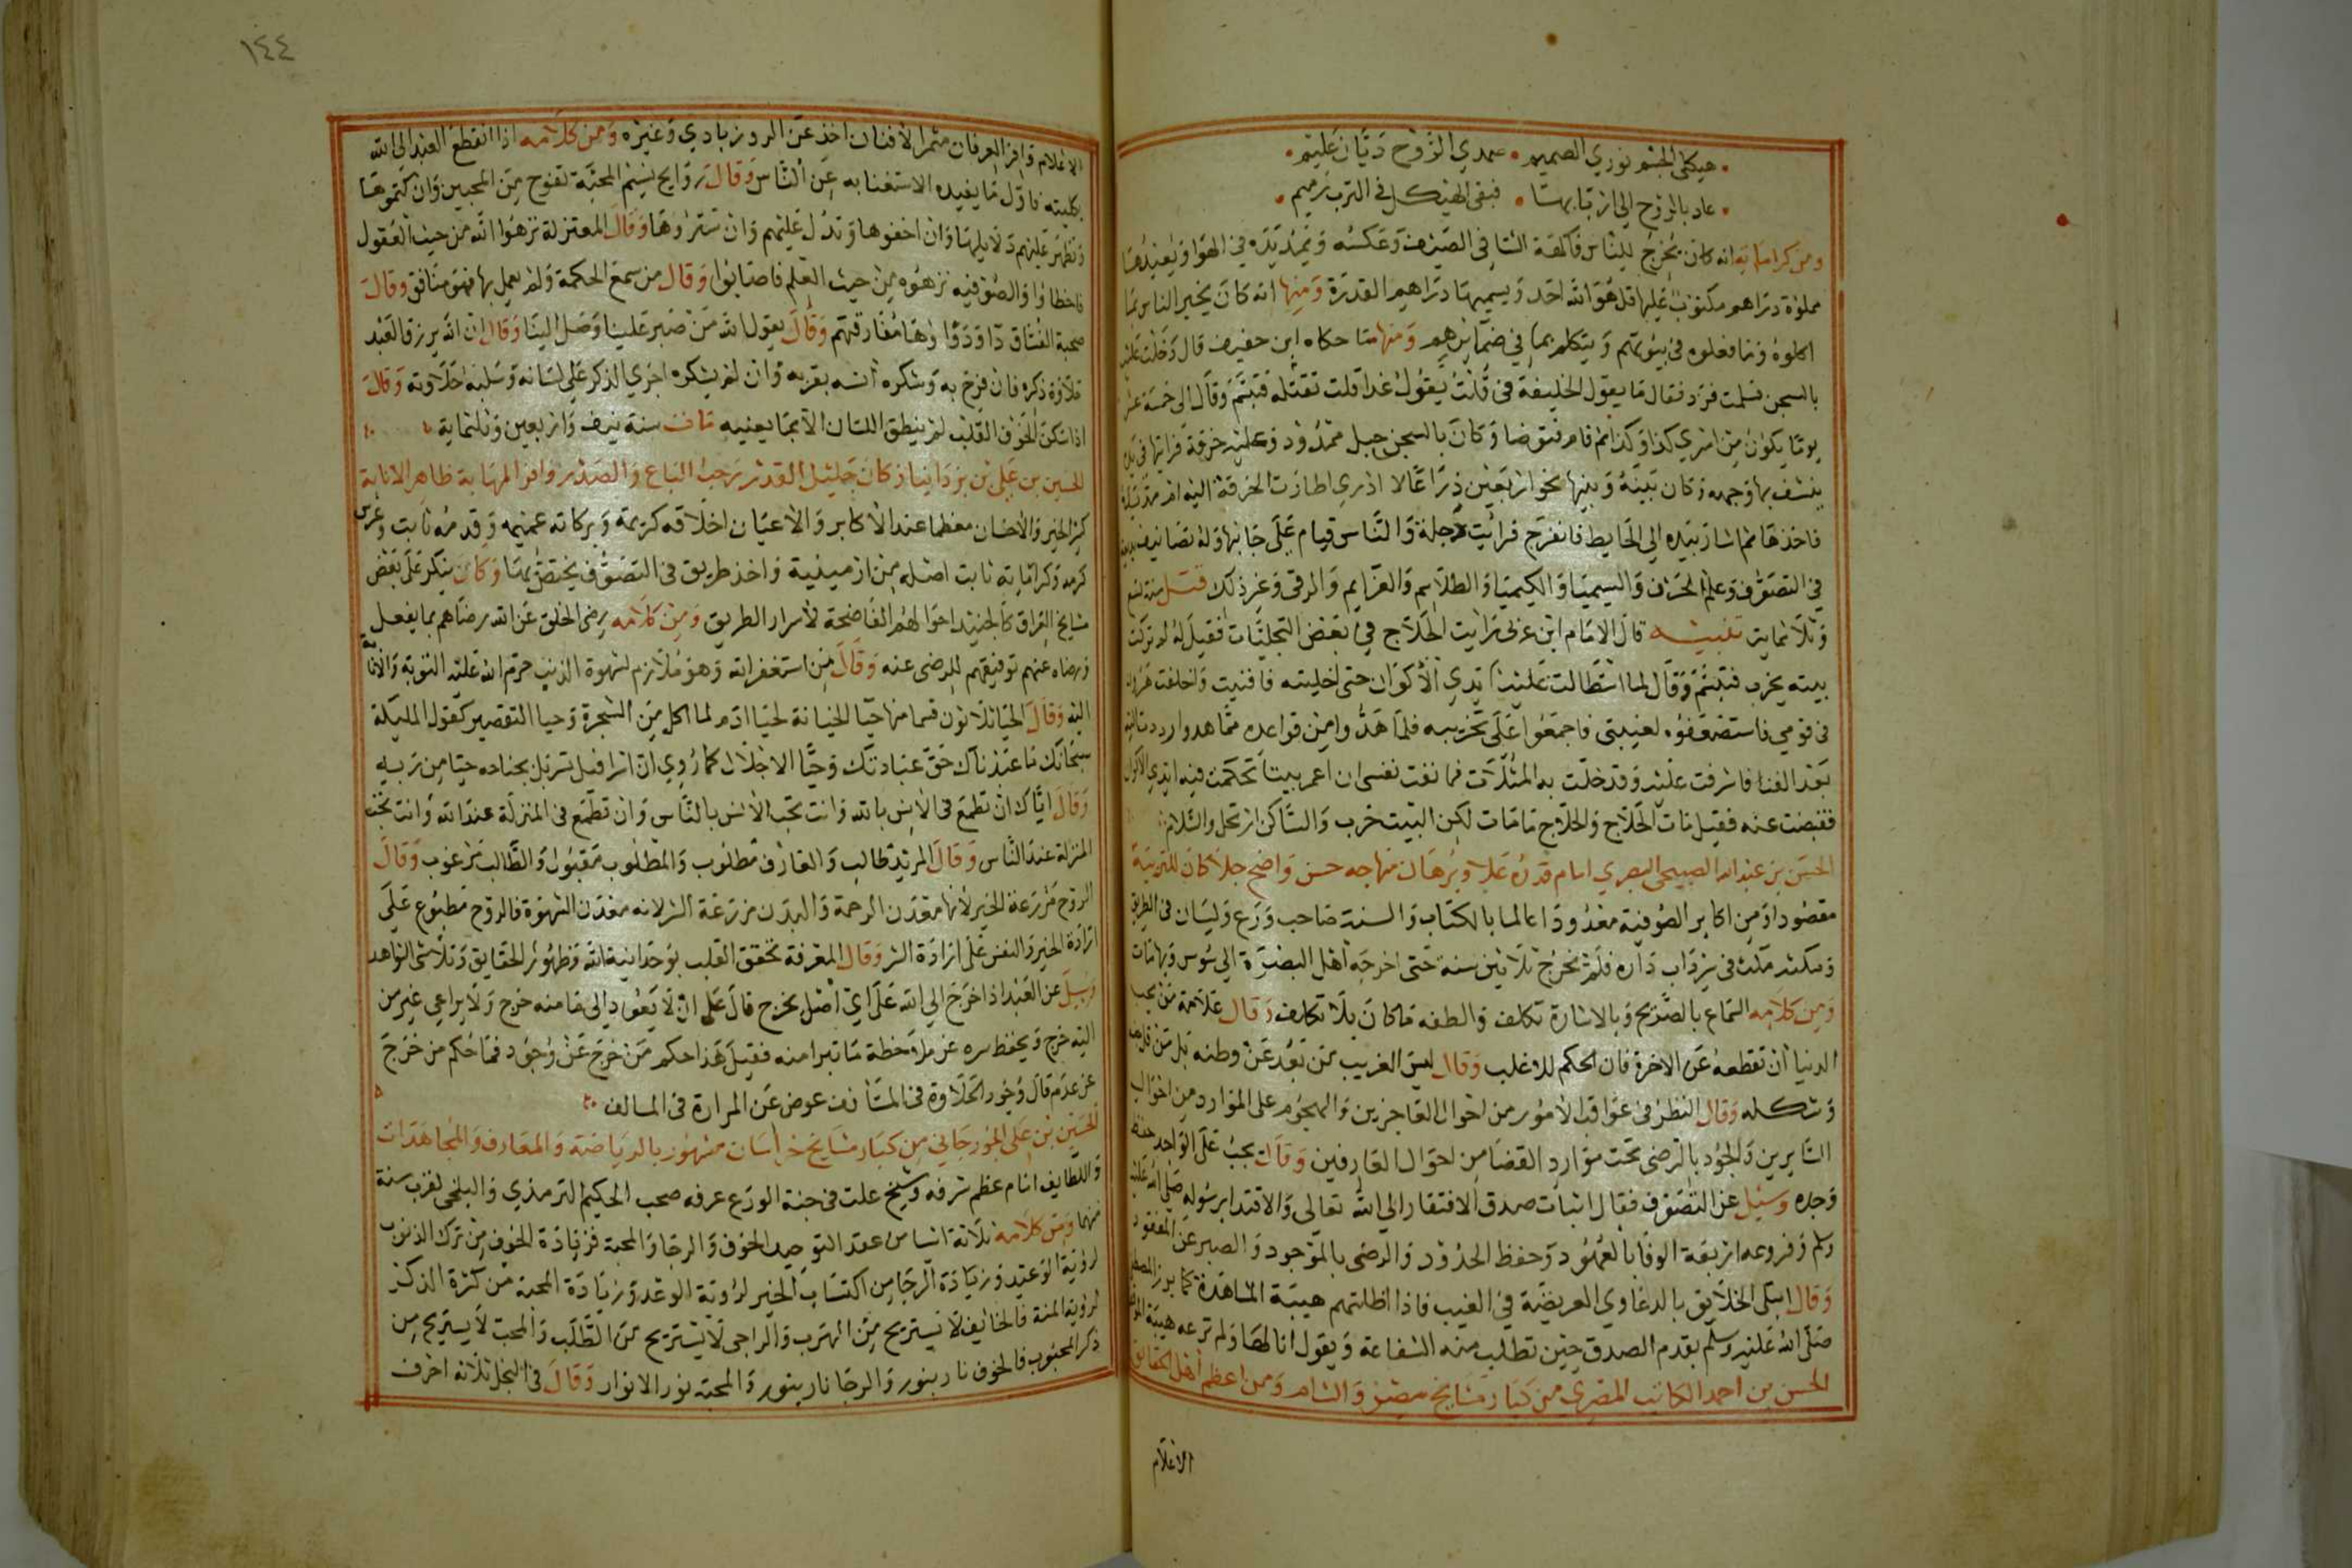 هيكلي الجسم نوري الصميم صمدي الروح ديان عليم
عاد بالروح الى اربابها فبقى الهيكل في الترب رميم
ومن كراماته انه كان يخرج للناس فاكهة الشتا في الصيف وعكسه ويمد يده في الهوا ويعيدها
مملوة دراهم مكتوب عليها قل هو الله احد ويسميها دراهم القدرة ومنها انه كان يخبر الناس بما
اكلوه وما فعلوه في بيوتهم ويتكلم بما في ضمايرهم ومنها ما حكاه ابن خفيف قال دخلت عليه
بالسجن فسلمت فرد فقال ما يقول الخليفة في قلت يقول غدا نقتله فتبسم وقال الى خمسة عشر
يوما يكون من امري كذا وكذا ثم قام فتوضا وكان بالسجن حبل ممدود وعليه خرقة فرايتها في يده
ينشف بها وجهه وكان بينه وبينها نحو اربعين ذراعا لا ادري اطارت الخرقة اليه ام مد يده
فاخذها ثم اشار بيده الى الحايط فانفرج فرايت دجلة والناس قيام على جانبها وله تصانيف بديعة
في التصوف وعلم الحرف والسيميا والكيميا والطلاسم والعزايم والرقى وغير ذلك قتل سنة تسع
وثلاثماية تنبيه قال الامام ابن عربي رايت الحلاج في بعض التجليات فقيل له لم تركت
بيته يخرب فتبسم وقال لما استطالت عليه ايدي الاكوان حتى اخليته فافنيت واخلفت هرون
في قومي فاستضعفوه لغيبتي فاجمعوا على تخريبه فلما هدوا من قواعده ما هدوا رددت اليه
بعد الفنا فاشرفت عليه وقد حلت به المثلات فما نفت نفسي ان اعمر بيتا تحكمت فيه ايدي الاكوان
فقبضت عنه فقيل مات الحلاج والحلاج ما مات لكن البيت خرب والساكن ارتحل والسلام
الحسن بن عبد الله الصبيحي البصري امام قدره علا وبرهان منهاجه حسن واضح جلا كان للتربية
مقصودا ومن اكابر الصوفية معدودا عالما بالكتاب والسنة صاحب ورع ولسان في الطريق
ومكث في سرداب داره فلم يخرج ثلاثين سنة حتى اخرجه اهل البصرة الى سوس وبها مات
ومن كلامه السماع بالتصريح وبالاشارة تكلف والطفه ما كان بلا تكلف وقال علامة من يحب
الدنيا ان تقطعه عن الاخرة فان الحكم للاغلب وقال ليس الغريب من بعد عن وطنه بل من
وشكله وقال النظر في عواقب الامور من احوال العاجزين والهجوم على الموارد من احوال
السايرين والجود بالرضى تحت موارد القضا من احوال العارفين وقال يجب على الواجد
وجده وسئل عن التصوف فقال اثبات صدق الافتقار الى الله تعالى والاقتدا برسوله صلى الله عليه
وسلم وفروعه اربعة الوفا بالعهود وحفظ الحدود والرضى بالموجود والصبر عن المفقود
وقال ابتلى الخلايق بالدعاوي العريضة في الغيب فاذا اظلتهم هيبة المشاهدة كما برز المصطفى
صلى الله عليه وسلم بقدم الصدق حين تطلب منه الشفاعة ويقول انا لها ولم ترعه هيبة
الحسن بن احمد الكاتب المصري من كبار مشايخ مصر والشام ومن اعظم اهل الحقايق
الاعلام
١٤٤
الاعلام وافر العرفان مثمر الافنان اخذ عن الروزبادي وغيره ومن كلامه اذا انقطع العبد الى الله
بكليته فاول ما يفيده الاستغنا به عن الناس وقال روايح نسيم المحبة تفوح من المحبين وان كتموها
وتظهر عليهم دلايلها وان اخفوها وتدل عليهم وان ستروها وقال المعتزلة نزهوا الله من حيث العقول
فاخطاوا والصوفيه نزهوه من حيث العلم فاصابوا وقال من سمع الحكمة ولم يعمل بها فهو منافق وقال
صحبة الفساق دا ودوا وها مفارقتهم وقال يقول الله من صبر علينا وصل الينا وقال ان الله يرزق العبد
حلاوة ذكره فان فرح به وشكره انسه بقربه وان لم يشكره اجرى الذكر على لسانه وسلبه حلاوته وقال
اذا سكن الخوف القلب لم ينطق اللسان الا بما يعنيه مات سنة نيف واربعين وثلثماية
الحسين بن علي بن يزدانيار كان جليل القدر رحب الباع والصدر وافر المهابة ظاهر الانابة
كثير الخير والاحسان معظما عند الاكابر والاعيان اخلاقه كريمة وبركاته عميمه وقدمه ثابت وغرس
كرمه وكراماته نابت اصله من ارمينية واخذ طريق في التصوف يختص بها وكان ينكر على بعض
مشايخ العراق كالجنيد احوالهم الفاضحة لاسرار الطريق ومن كلامه رضى الخلق عن الله رضاهم بما يفعل
ورضاه عنهم توفيقهم للرضى عنه وقال من استغفر الله وهو ملازم لشهوة الذنب حرم الله عليه التوبة والانابة
اليه وقال الحيا ثلاثون قسما منها حيا الخيانة لحيا ادم لما اكل من الشجرة وحيا التقصير كقول المليكة
سبحانك ما عبدناك حق عبادتك وحيا الاجلال كما روي ان اسرافيل تسربل بجناحه حيا من ربه
وقال اياك ان تطمع في الانس بالله وانت تحب الانس بالناس وان تطمع في المنزلة عند الله وانت تحب
المنزلة عند الناس وقال المريد طالب والعارف مطلوب والمطلوب مقبول والطالب مرعوب وقال
الروح مزرعة الخير لانها معدن الرحمة والبدن مزرعة الشر لانه معدن الشهوة فالروح مطبوع على
ارادة الخير والنفس على ارادة الشر وقال المعرفة تحقق القلب بوحدانية الله وظهور الحقايق وتلاشي الشواهد
وسيل عن العبد اذا خرج الى الله على اي اصل يخرج قال على ان لا يعود الى ما منه خرج ولا يراعي غير من
اليه خرج ويحفظ سره عن ملاحظة ما تبرا منه فقيل هذا حكم من خرج عن وجود فما حكم من خرج
عن عدم قال وجود الحلاوة في المستانف عوض عن المرارة في السالف
الحسين بن علي الجوزجاني من كبار مشايخ خراسان مشهور بالرياضة والمعارف والمجاهدات
واللطايف امام عظم شرفه وشيخ علت في جنة الورع غرفه صحب الحكيم الترمذي والبلخي لقرب سنه
منهما ومن كلامه ثلاثة اشيا من عقد التوحيد الخوف والرجا والمحبة فزيادة الخوف من ترك الذنوب
لروية الوعيد وزيادة الرجا من اكتساب الخير لروية الوعد وزيادة المحبة من كثرة الذكر
لروية المنة فالخايف لا يستريح من الهرب والراجي لا يستريح من الطلب والمحب لا يستريح من
ذكر المحبوب فالخوف نار بنور والرجا نار بنور والمحبة نور الانوار وقال في البخل ثلاثة احرف